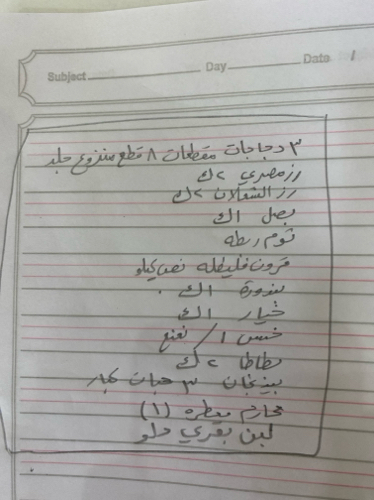 Subject Day Date /
٣ دجاجات مقطعات ٨ قطع منزوع جلد
رز مصري ٢ ك
رز الشعلان ٢ ك
بصل ١ ك
ثوم ربطه
قرون فليفله نص كيلو
بندورة ١ ك
خيار ١ ك
خس ١ / نعنع
بطاطا ٢ ك
بيذنجان ٣ حبات كبار
محارم معطره (١)
لبن بقري دلو